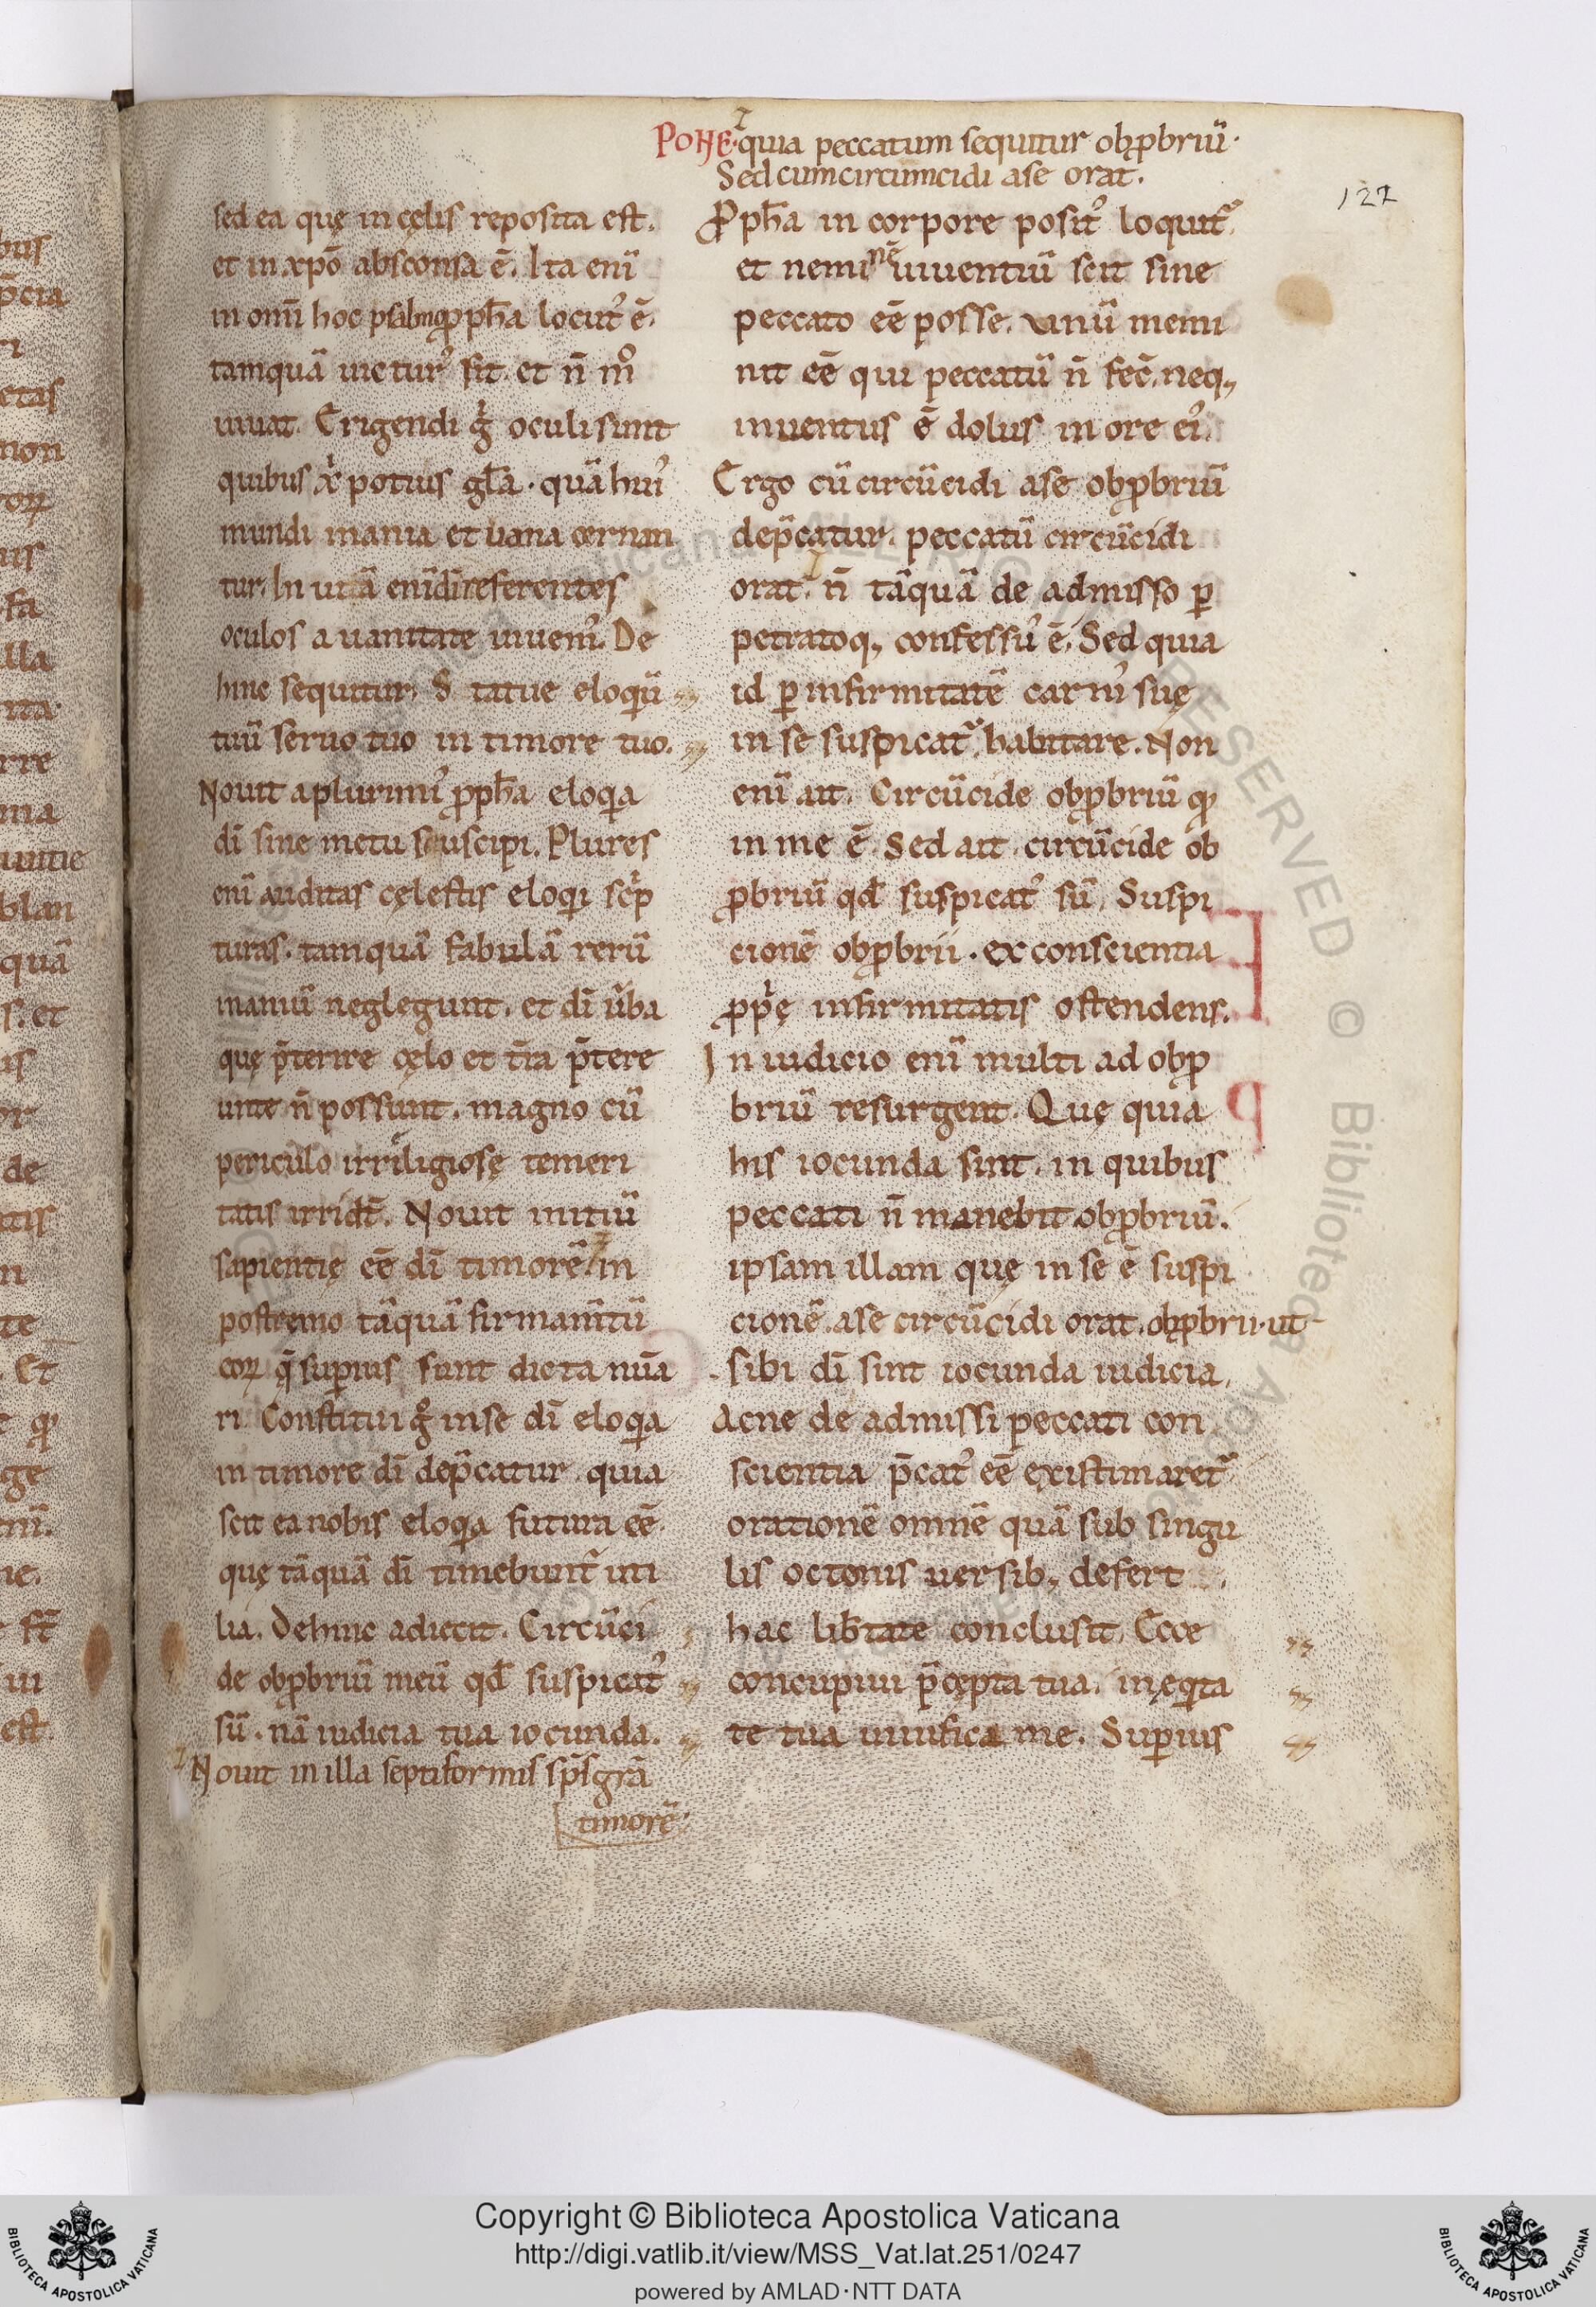 PONE· quia peccatum sequitur obꝓbriū·
Sed cum circumcidi ase orat.
127
sed ea quę in cęlis reposita est.
et in xpō absconsa ē. Ita enī
in omī hoc psalmo ꝓph̄a locut᾽ ē.
tamquā uictur᾽ sit. et n̄ m̊
uiuat. Erigendi g̊ oculi sunt
quibus x̄ potius gl̄a · quā hui᾽
mundi inania et uana cernan
tur. In uitā enī dī referentes
oculos a uanitate uiuem᾽. De
hinc sequitur. Statue eloqiū
tuū seruo tuo in timore tuo.
Nouit a plurimi᾽ ꝓph̄a eloqia
dī sine metu suscipi. Plures
enī auditas cęlestis eloqi sc̄p
turas. tamquā fabulā rerū
inaniū neglegunt. et dī ūba
quę p̄terire cęlo et t̄ra p̄tere
unte n̄ possunt. magno cū
periculo irreligiosę temeri
tatis irridt̄. Nouit initiū
sapientię eē dī timorē in
postremo tāquā firmam̄tū
eoꝝ q̄ supius sunt dicta nūa
ri. Constitui g̊ in se dī eloqia
in timore dī dep̄catur. quia
scit ea nobis eloqia futura eē.
quę tāquā dī timebunt᾽ uti
lia. Dehinc adiecit. Circūci
de obꝓbriū meū qd̄ suspicat᾽
sū. nā iudicia tua iocunda.
Nouit in illa septiformis sp̄s grā
timorē
Ꝓph̄a in corpore posit᾽ loquit᾽.
et neminē uiuentiū scit sine
peccato eē posse. unū memi
nit eē qui peccatū n̄ fec̄. neq;
inuentus ē dolus in ore ei᾽.
Ergo cū circūcidi ase obꝓbriū
dep̄catur. peccatū circūcidi
orat. n̄ tāquā de admisso ꝑ
petratoq; confessu᾽ ē. Sed quia
id ꝑ infirmitatē carni᾽ suę
in se suspicat᾽ habitare. Non
enī ait. Circūcide obꝓbriū qd̄
in me ē. Sed ait. circūcide ob
ꝓbriū qd̄ suspicat᾽ sū. Suspi
cionē obꝓbrii · ex conscientia
ꝓp̄ę infirmitatis ostendens.
In iudicio enī multi ad obꝓ
briū resurgent. Quę quia
his iocunda sunt. in quibus
peccati n̄ manebit obꝓbriū.
ipsam illam quę in se ē suspi
cionē. ase circūcidi orat. obꝓbrii · ut
sibi dī sint iocunda iudicia.
Acne de admissi peccati con
scientia p̄cat᾽ eē existimaret᾽
orationē omnē quā sub singu
lis octonis uersib; defert
hac lib̄tate conclusit. Ecce
concupiui p̄cepta tua. in ęqita
te tua uiuifica me. Superius
Copyright © Biblioteca Apostolica Vaticana
http://digi.vatlib.it/view/MSS_Vat.lat.251/0247
powered by AMLAD·NTT DATA